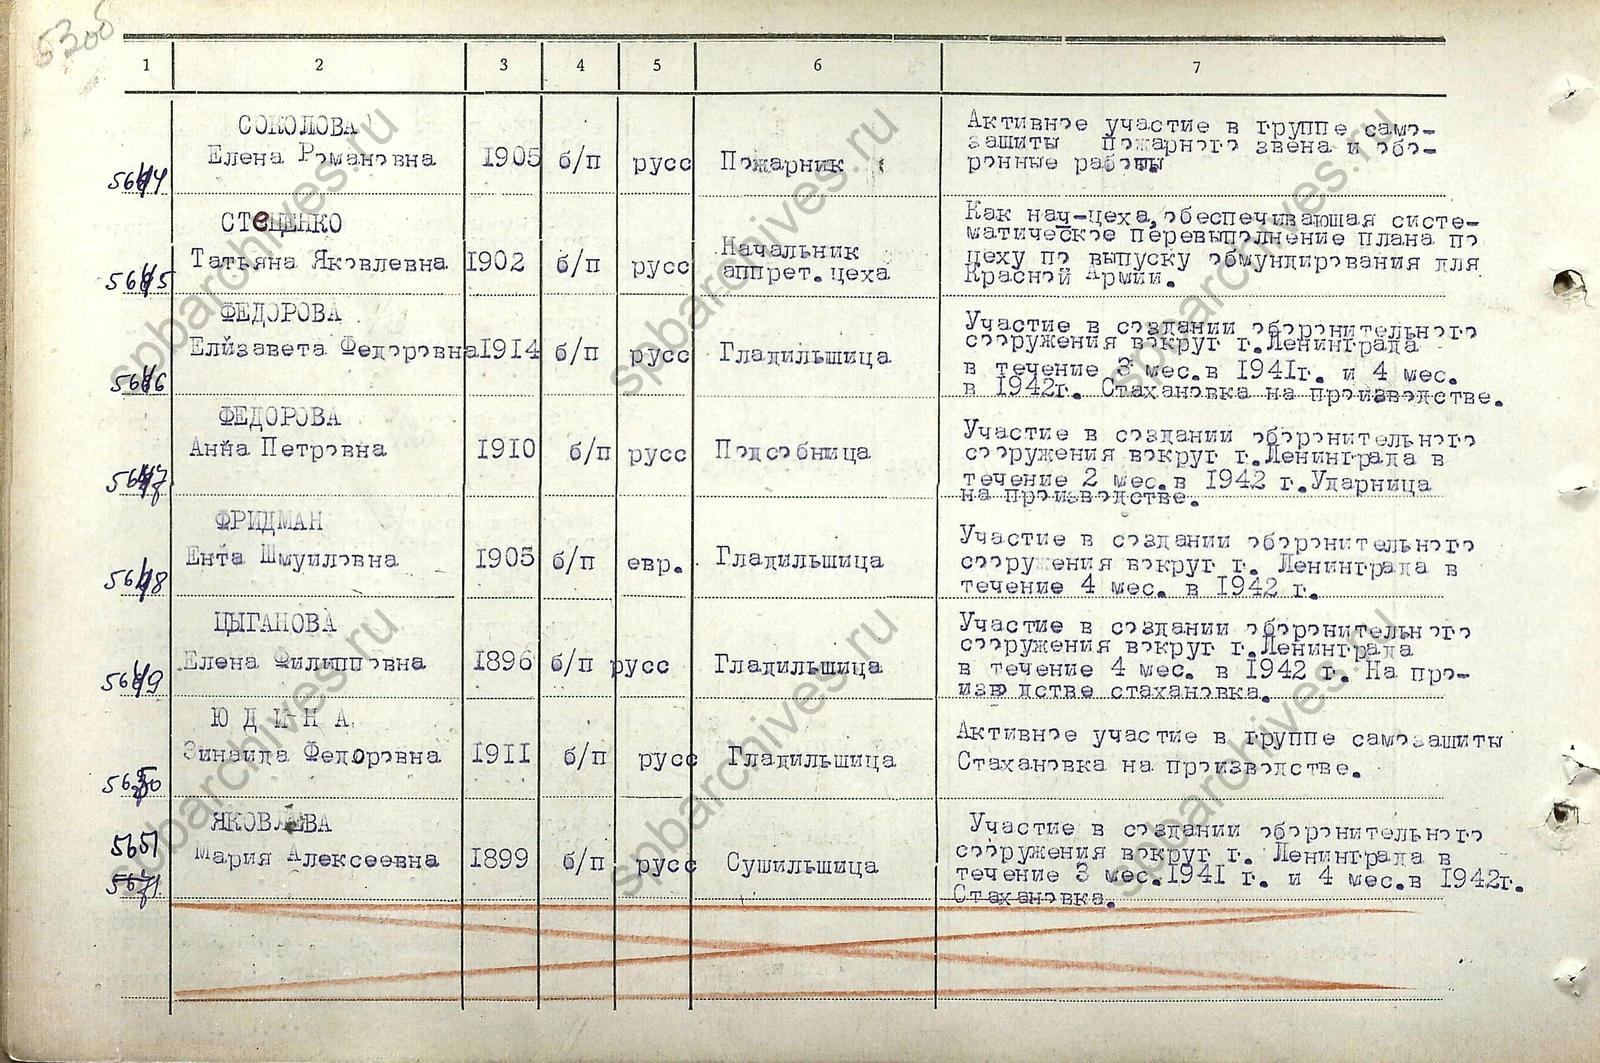 1 2 3 4 5 6 7
СОКОЛОВА
Елена Романовна 1905 б/п русс Пожарник
Активное участие в группе само-
защиты пожарного звена и обо-
ронные работы
5644
СТеЦЕНКО
Татьяна Яковлевна 1902 б/п русс
Начальник
аппрет.цеха
Как нач-цеха,обеспечивающая систе-
матическое перевыполнение плана по
цеху по выпуску обмундирования для
Красной Армии.
5645
ФЕДОРОВА
Елизавета Федоровна 1914 б/п русс Гладильщица
Участие в создании оборонительного
сооружения вокруг г.Ленинграда
в течение 3 мес.в 1941г. и 4 мес.
в 1942г. Стахановка на производстве.
5646
ФЕДОРОВА
Анна Петровна 1910 б/п русс Подсобница
Участие в создании оборонительного
сооружения вокруг г.Ленинграда в
течение 2 мес.в 1942 г.Ударница
на производстве.
5647
ФРИДМАН
Ента Шмуиловна 1905 б/п евр. Гладильщица
Участие в создании оборонительного
сооружения вокруг г. Ленинграда в
течение 4 мес. в 1942 г.
5648
ЦЫГАНОВА
Елена Филипповна 1896 б/п русс Гладильщица
Участие в создании оборонительного
сооружения вокруг г.Ленинграда
в течение 4 мес. в 1942 г. На про-
изводстве стахановка.
5649
Ю Д И Н А.
Зинаида Федоровна 1911 б/п русс Гладильщица
Активное участие в группе самозащиты
Стахановка на производстве.
5650
ЯКОВЛЕВА
Мария Алексеевна 1899 б/п русс Сушильщица
Участие в создании оборонительного
сооружения вокруг г. Ленинграда в
течение 3 мес.1941 г. и 4 мес.в 1942г.
Стахановка.
5651
spbarchives.ru
spbarchives.ru
spbarchives.ru
spbarchives.ru
spbarchives.ru
spbarchives.ru